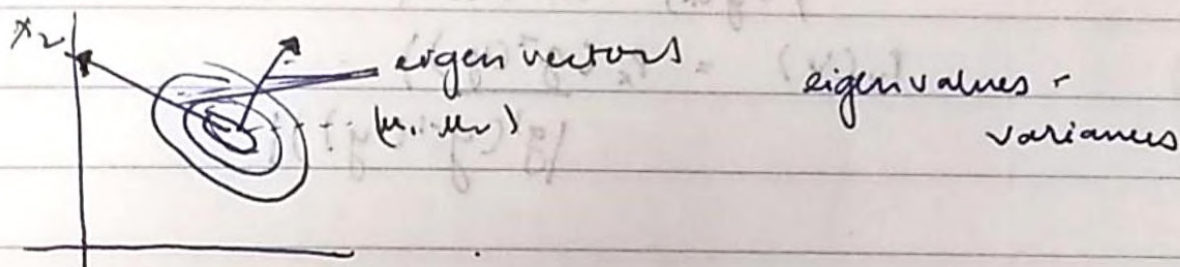 x₂
eigen vectors
(μ₁ μ₂)
eigen values -
variances